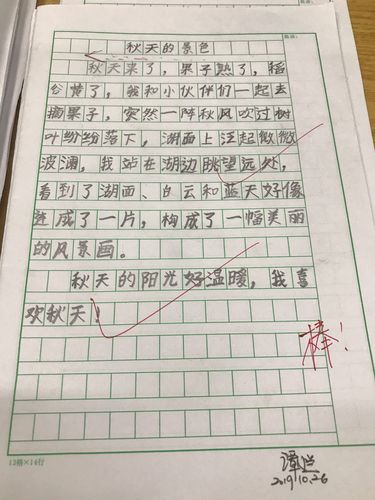 秋天的景色
秋天来了，果子熟了，稻
谷黄了，我和小伙伴们一起去
摘果子，突然一阵秋风吹过树
叶纷纷落下，湖面上泛起微微
波澜，我站在湖边眺望远处，
看到了湖面、白云和蓝天好像
连成了一片，构成了一幅美丽
的风景画。
秋天的阳光好温暖，我喜
欢秋天！
棒！
12格×14行
2019.10.26